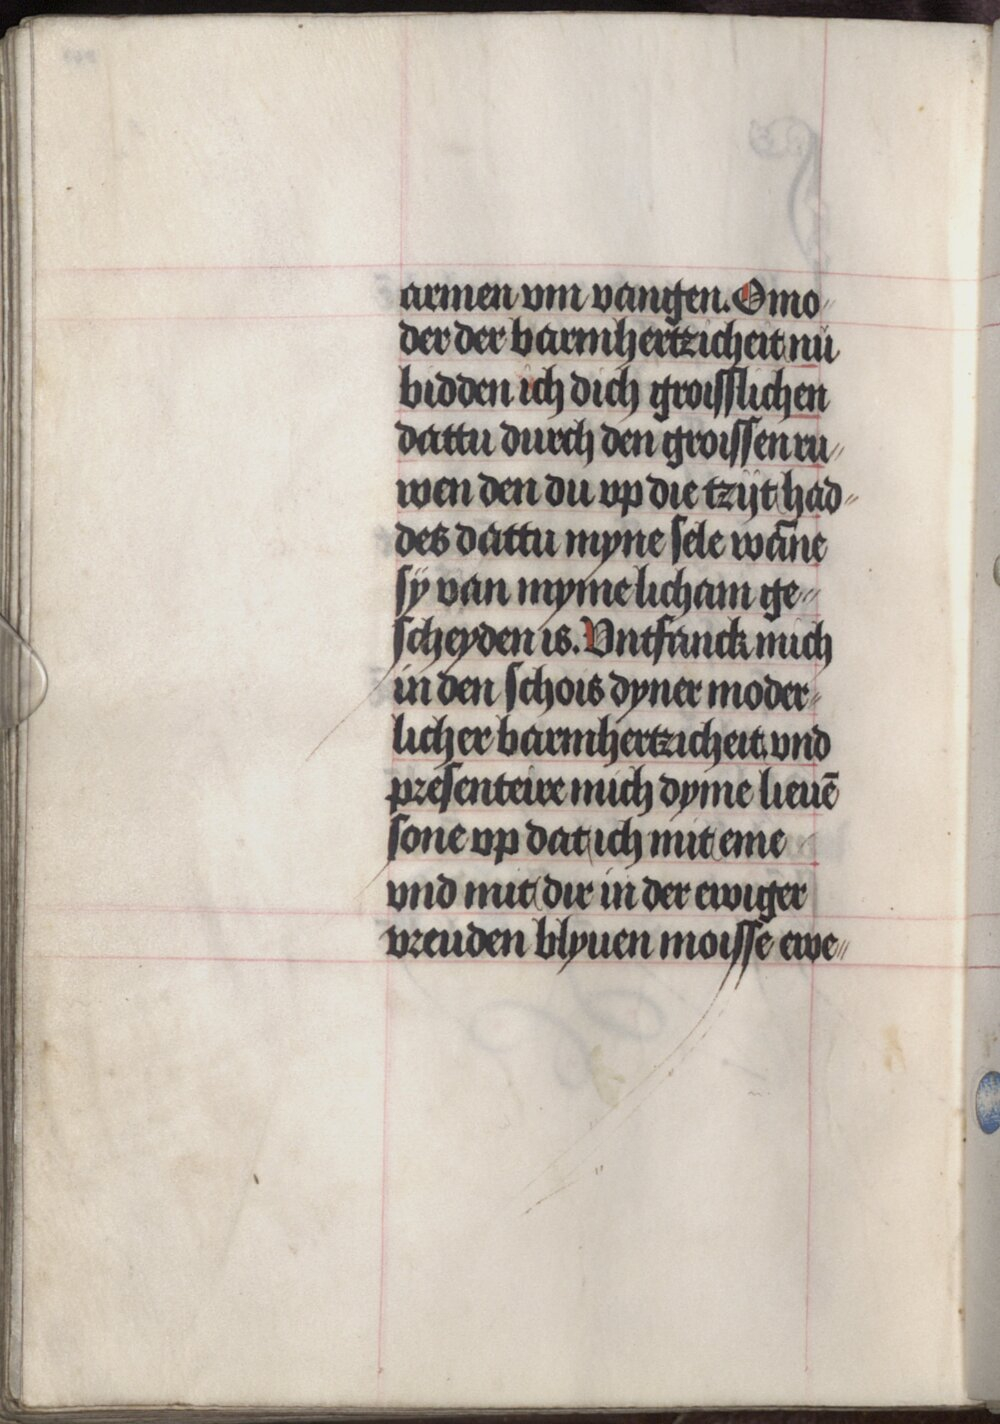 armen vm vangen. O mo〃
der der barmhertzicheit nu
bidden ich dich groisslichen
dattu durch den groissen ru〃
wen den du vp die tzijt had〃
des dattu myne sele wāne
sij van myme licham ge〃
scheyden is. Vntfanck mich
in den schois dyner moder〃
licher barmhertzicheit vnd
presenteire mich dyme lieuē
sone vp dat ich mit eme
vnd mit dir in der ewiger
vreuden blyuen moisse ewe〃